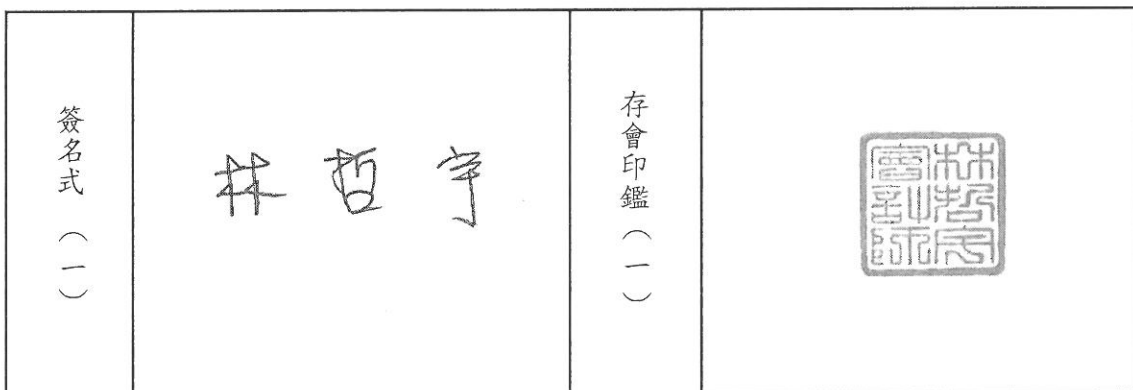 簽名式（一）
林哲宇
存會印鑑（一）
林哲宇
會計師